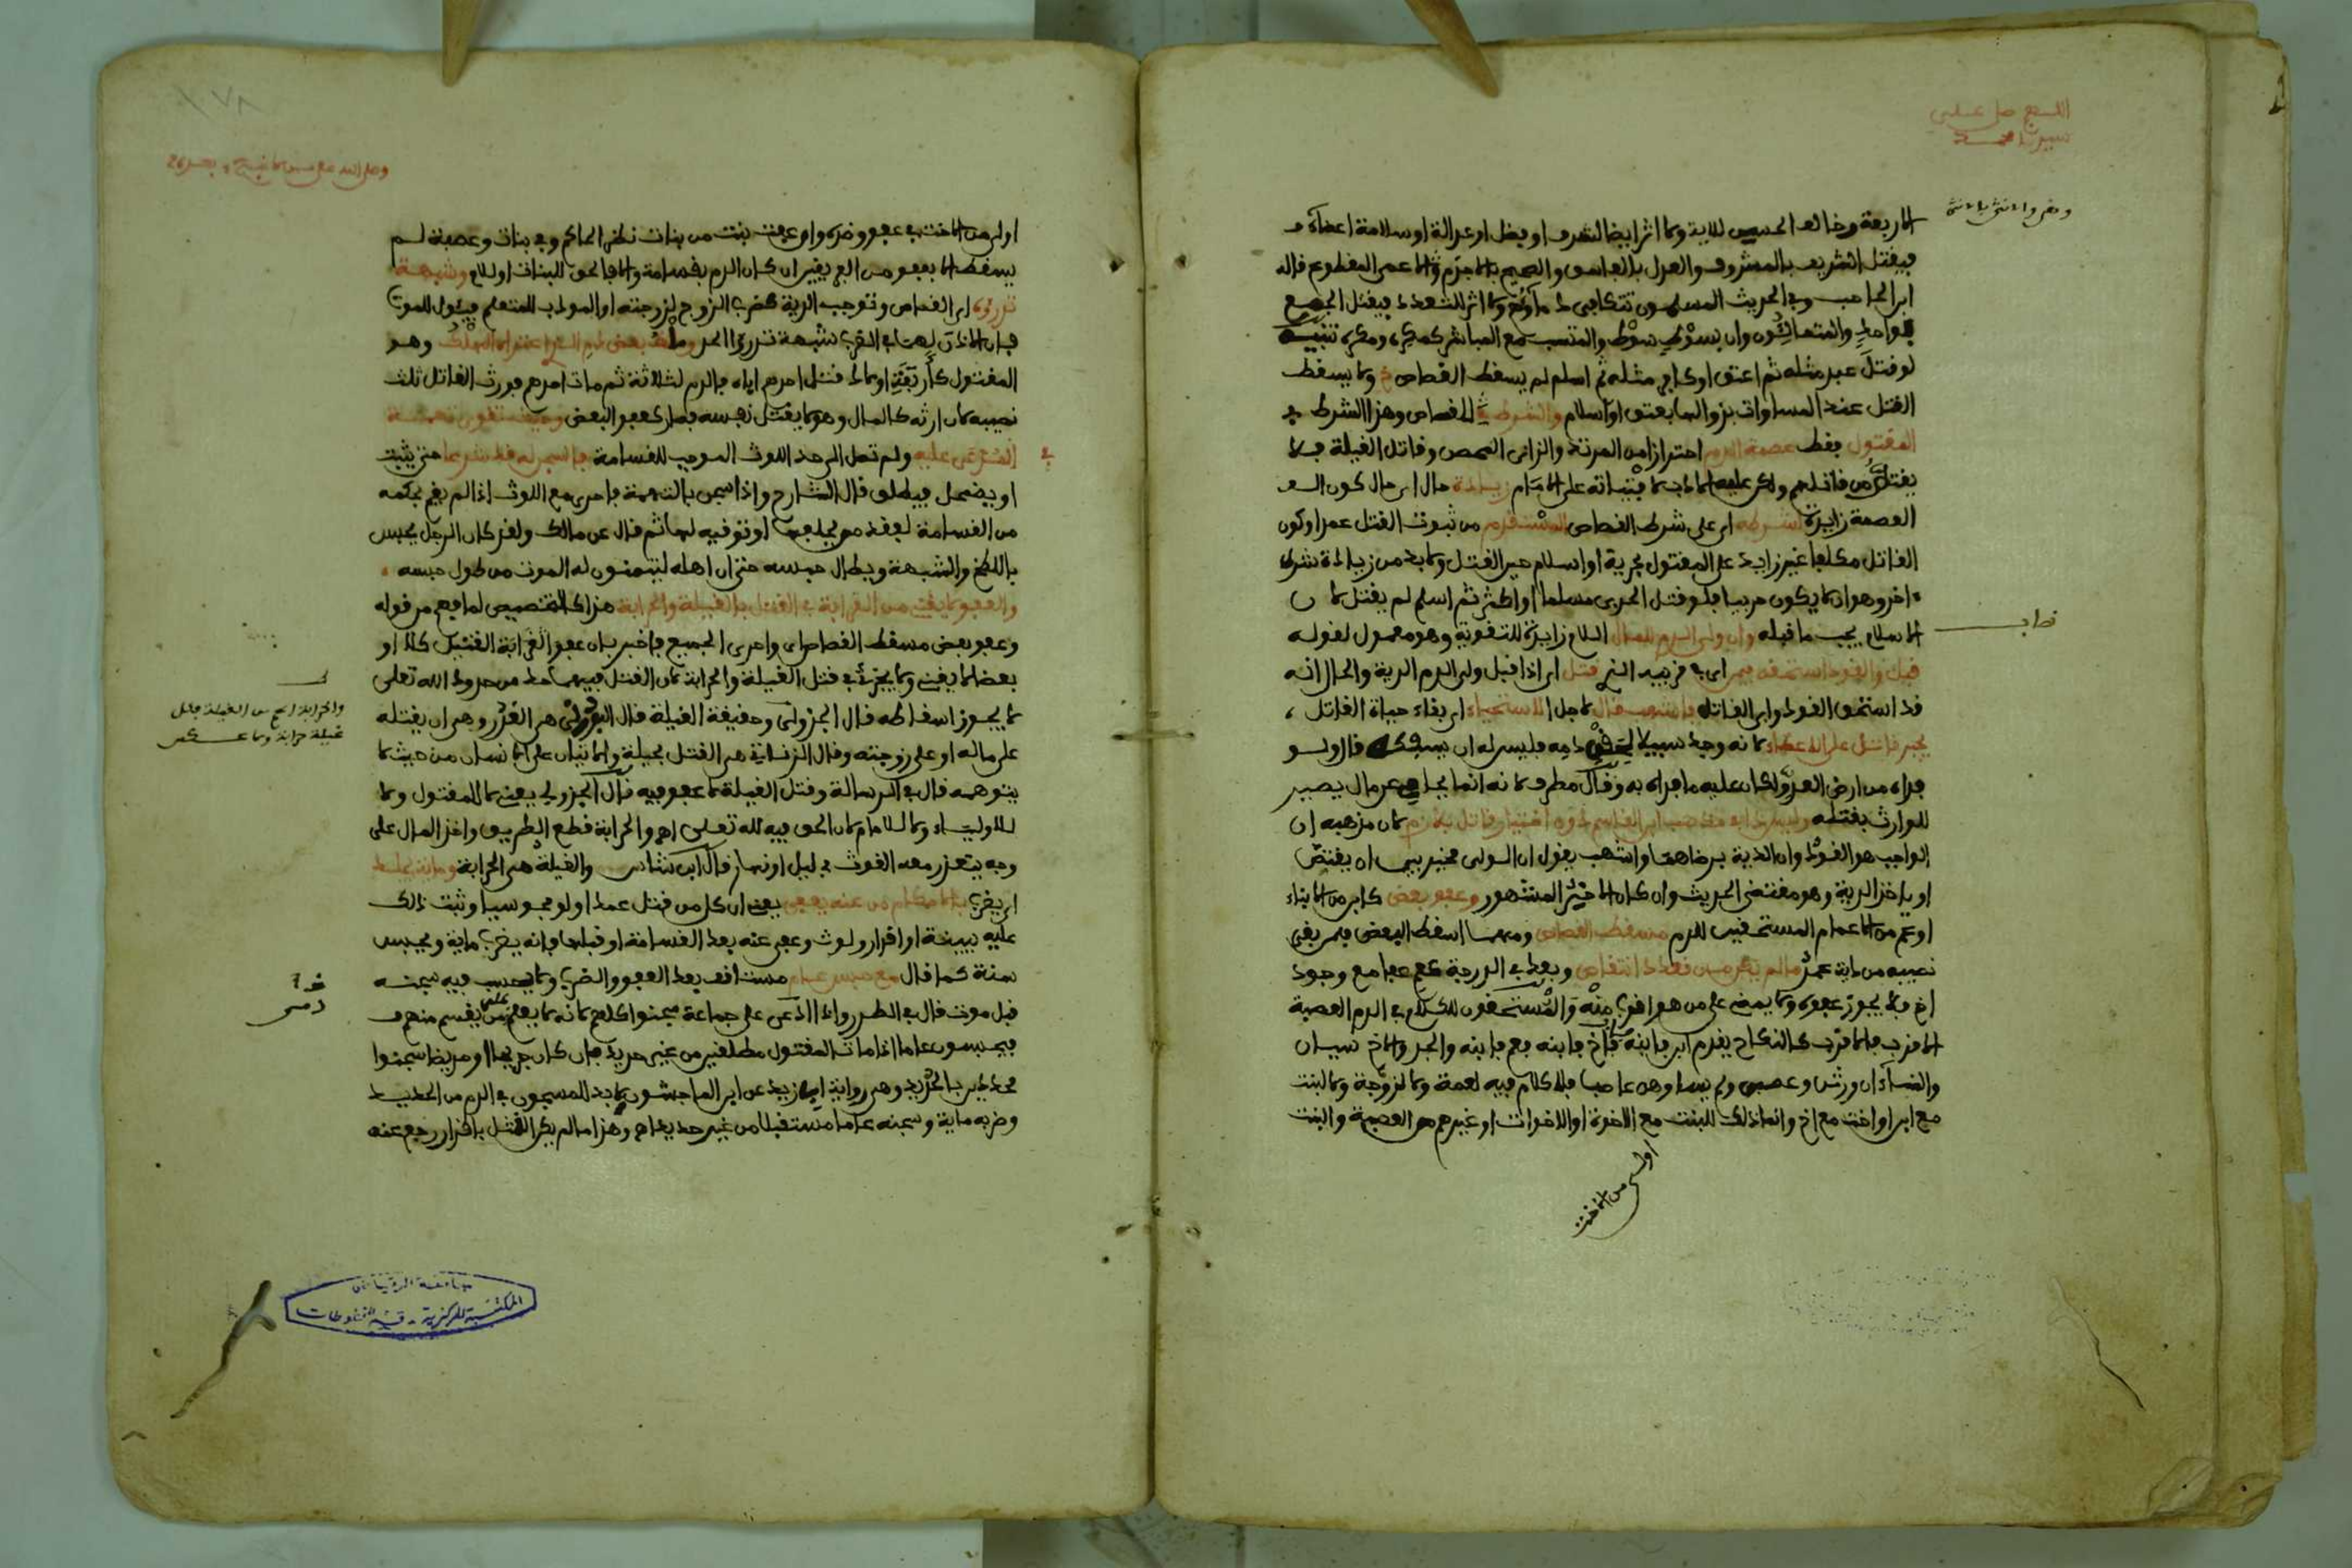 اللهم صل على
سيدنا محمد
الاربعة وخالف الحسن للاية ولا اثر ايضا لشرف او فضل او عدالة او سلامة اعضاء و
فيقتل الشريف بالمشروف والعدل بالفاسق والصحيح بالاجذم والاعمى المقطوع قاله
ابن الحاجب وفي الحديث المسلمون تتكافى دماؤهم ولا اثر للتعدد فيقتل الجميع
بواحد والمتمالئون وان بسوط سوط والمتسبب مع المباشر كمكره ومكره تنبيه
لو قتل عبد مثله ثم اعتق او كافر مثله ثم اسلم لم يسقط القصاص ولا يسقط
القتل عند المساوات بزوالها بعتق او اسلام والشرط للقصاص وهذا الشرط في
المقتول فقط عصمة الدم احترازا من المرتد والزاني المحصن وقاتل الغيلة فلا
يقتل من قاتلهم ولكن عليه الادب لافتياته على الامام زيادة حال اي حال كون
العصمة زايدة لشرطه اي على شرط القصاص المتقدم من ثبوت القتل عمدا وكون
القاتل مكلفا غير زايد على المقتول بحرية او اسلام حين القتل ولا بد من زيادة شرط
اخر وهو ان لا يكون حربيا فلو قتل الحربي مسلما او اكثر ثم اسلم لم يقتل لان
الاسلام يجب ما قبله وان ولي الدم للمال اللام زايدة للتقوية وهو معمول لقوله
قبل والقود استحقه فيمن اي في قريبه الذي قتل اي اذا قبل ولي الدم الدية والحال انه
قد استحق القود وابى القاتل فاشهب قال لاجل الاستحياء اي بقاء حياة القاتل
يجبر قاتل على الاعطاء لانه وجد سبيلا لحقن دمه فليس له ان يسفكه قال ولو
فداه من ارض العدو لكان عليه ما فداه به وقال مطرف لانه انما يدافع عن مال يصير
للوارث بقتله وليس ذا في مذهب ابن القاسم دون اختيار قاتل بلازم لان مذهبه ان
الواجب هو القود وان الدية برضاهما واشهب يقول ان الولي مخير بين ان يقتص
او ياخذ الدية وهو مقتضى الحديث وان كان الاخير المشهور وعفو بعض كابن من الابناء
او عم من الاعمام المستحقين للدم مسقط القصاص ومهما اسقط البعض فلمن بقي
نصيبه من دية عمد ما لم يكن من قعدد انتقاص وبعد في الدرجة كعم عفا مع وجود
اخ فلا يجوز عفوه ولا يمضي على من هو اقرب منه والمستحقون للكلام في الدم العصبة
الاقرب فالاقرب كالنكاح يقدم ابن فابنه فاخ فابنه فعم فابنه والجد والاخ سيان
والنساء ان ورثن وعصبن ولم يساوهن عاصب فلا كلام فيه لعمة ولا لزوجة ولا لبنت
مع ابن او اخت مع اخ وانما ذلك للبنت مع الاخوة او الاخوات او غيرهم من العصبة والبنت
اولى من الاخت
اولى من الاخت في عفو وضده وان عفت بنت من بنات نظر الحاكم وفي بنات وعصبة لم
يسقط الا بعفو من الفريقين ان كان الدم بقسامة والا فالحق للبنات اولا وشبهة
تدرؤه اي القصاص وتوجب الدية كضرب الزوج لزوجته او المودب للمتعلم فيئول للموت
فان الاذن لهما في الضرب شبهة تدرئ الحد وهو
المقتول كاربعة اولاد قتل احدهم اباه فالدم لثلاثة ثم مات احدهم فورث القاتل ثلث
نصيبه لان ارثه كالمال وهو لا يقتل نفسه فصار كعفو البعض وحيث تقوى تهمة
المدعى عليه ولم تصل الى حد اللوث الموجب للقسامة فالسجن له قد شرعا حتى يثبت
او يضمحل فيطلق قال الشارح واذا سجن بالتهمة فاحرى مع اللوث اذا لم يقم بحكمه
من القسامة لفقد من يحلفها او توقيه لها ثم قال عن مالك ولقد كان الرجل يحبس
باللطخ والشبهة ويطال حبسه حتى ان اهله ليتمنون له الموت من طول حبسه
والعفو لا يغني من القرابة في القتل بالغيلة والحرابة هذا كالتخصيص لما فهم من قوله
وعفو بعض مسقط القصاص وواحرى الجميع فاخبر بان عفو القرابة القتيل كلا او
بعضا لا يغني ولا يجزئ في قتل الغيلة والحرابة لان القتل فيهما حد من حدود الله تعلى
لا يجوز اسقاطه قال الجزولي وحقيقة الغيلة قال البوني هي الغدر وهي ان يقتله
على ماله او على زوجته وقال الزناتي هي القتل بحيلة والاتيان على الانسان من حيث لا
يتوهمه قال في الرسالة وقتل الغيلة لا عفو فيه قال الجزولي يعني لا للمقتول ولا
للاولياء ولا للامام لان الحق فيه لله تعلى اه والحرابة قطع الطريق واخذ المال على
وجه يتعذر معه الغوث في ليل او نهار قال ابن شاس والغيلة هي الحرابة وماية يجلد
اي يضرب بالاحكام من عنه يعفى يعني ان كل من قتل عمدا ولو مجوسيا وثبت ذلك
عليه ببينة او اقرار ولوث وعفي عنه بعد القسامة او قبلها فانه يضرب ماية ويحبس
سنة كما قال مع حبس عام مستانف بعد العفو والضرب ولا يحسب فيه سجنه
قبل موت قال في الطرر واذا ادعى على جماعة سجنوا كلهم لانه لا يعلم على من يقسم منهم
فيحبسون عاما اذا مات المقتول مطلقين من غير حديد فان كان جريحا او مريضا سجنوا
محددين بالحديد وهي رواية ابي زيد عن ابن الماجشون لا بد للمسجون في الدم من الحديد
وضربه ماية وسجنه عاما مستقبلا من غير حديد اه وهذا ما لم يكن القتل باقرار رجع عنه
والحرابة اعم من الغيلة فكل
غيلة حرابة ولا عكس
جامعة الرقيات
المكتبة المركزية - قسم المخطوطات